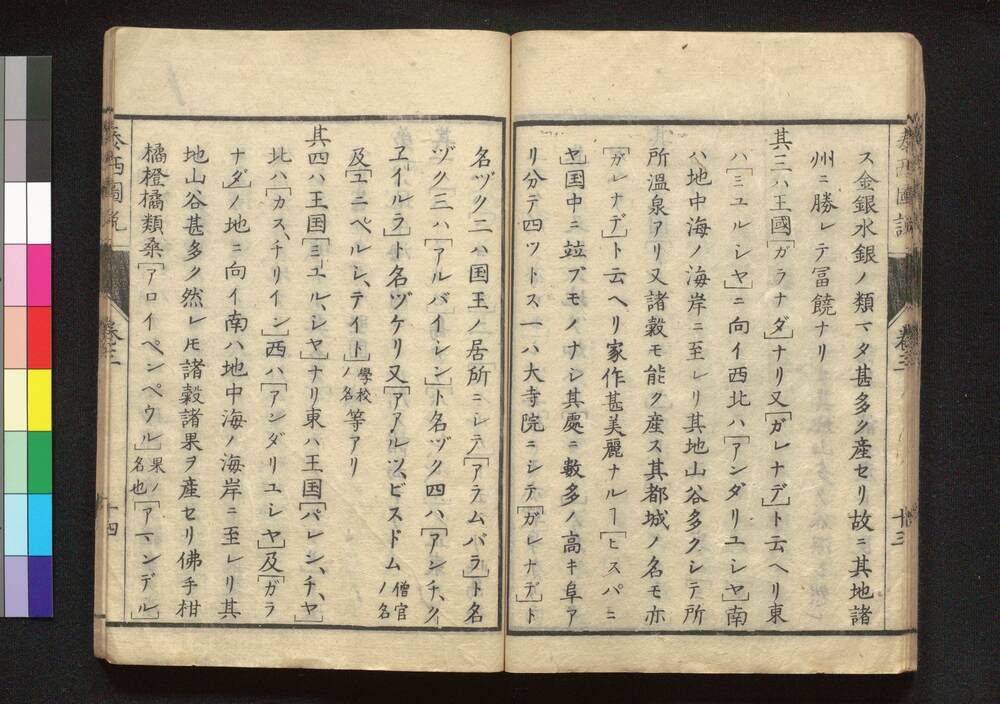 泰西圖説
卷三
十三
ス金銀水銀ノ類マタ甚多ク産セリ故ニ其地諸
州ニ勝レテ冨饒ナリ
其三ハ王國「ガラナダ」ナリ又「ガレナデ」ト云ヘリ東
ハ「ミユルシヤ」ニ向イ西北ハ「アンダリユシヤ」南
ハ地中海ノ海岸ニ至レリ其地山谷多クシテ所
所温泉アリ又諸穀モ能ク産ス其都城ノ名モ亦
「ガレナデ」ト云ヘリ家作甚美麗ナルヿ「ヒスパニ
ヤ」国中ニ竝ブモノナシ其處ニ數多ノ高キ阜ア
リ分テ四ツトス一ハ大寺院ニシテ「ガレナデ」ト
名ヅク二ハ国王ノ居所ニシテ「アラムバラ」ト名
ヅク三ハ「アルバイシン」ト名ヅク四ハ「アンチ、クイ
ヱイルラ」ト名ヅケリ又「アアルツ、ビスドム僧官ノ名
及「ユニベルシ、テイト」學校ノ名等アリ
其四ハ王国「ミユル、シヤ」ナリ東ハ王国「パレン、チ、ヤ」
北ハ「カス、チリイン」西ハ「アンダリユシヤ」及「ガラ
ナダ」ノ地ニ向イ南ハ地中海ノ海岸ニ至レリ其
地山谷甚多ク然レモ諸穀諸果ヲ産セリ佛手柑
橘橙橘類桒「アロイペンペウル」果ノ名也「アマンデル」
泰西圖説
卷三
十四